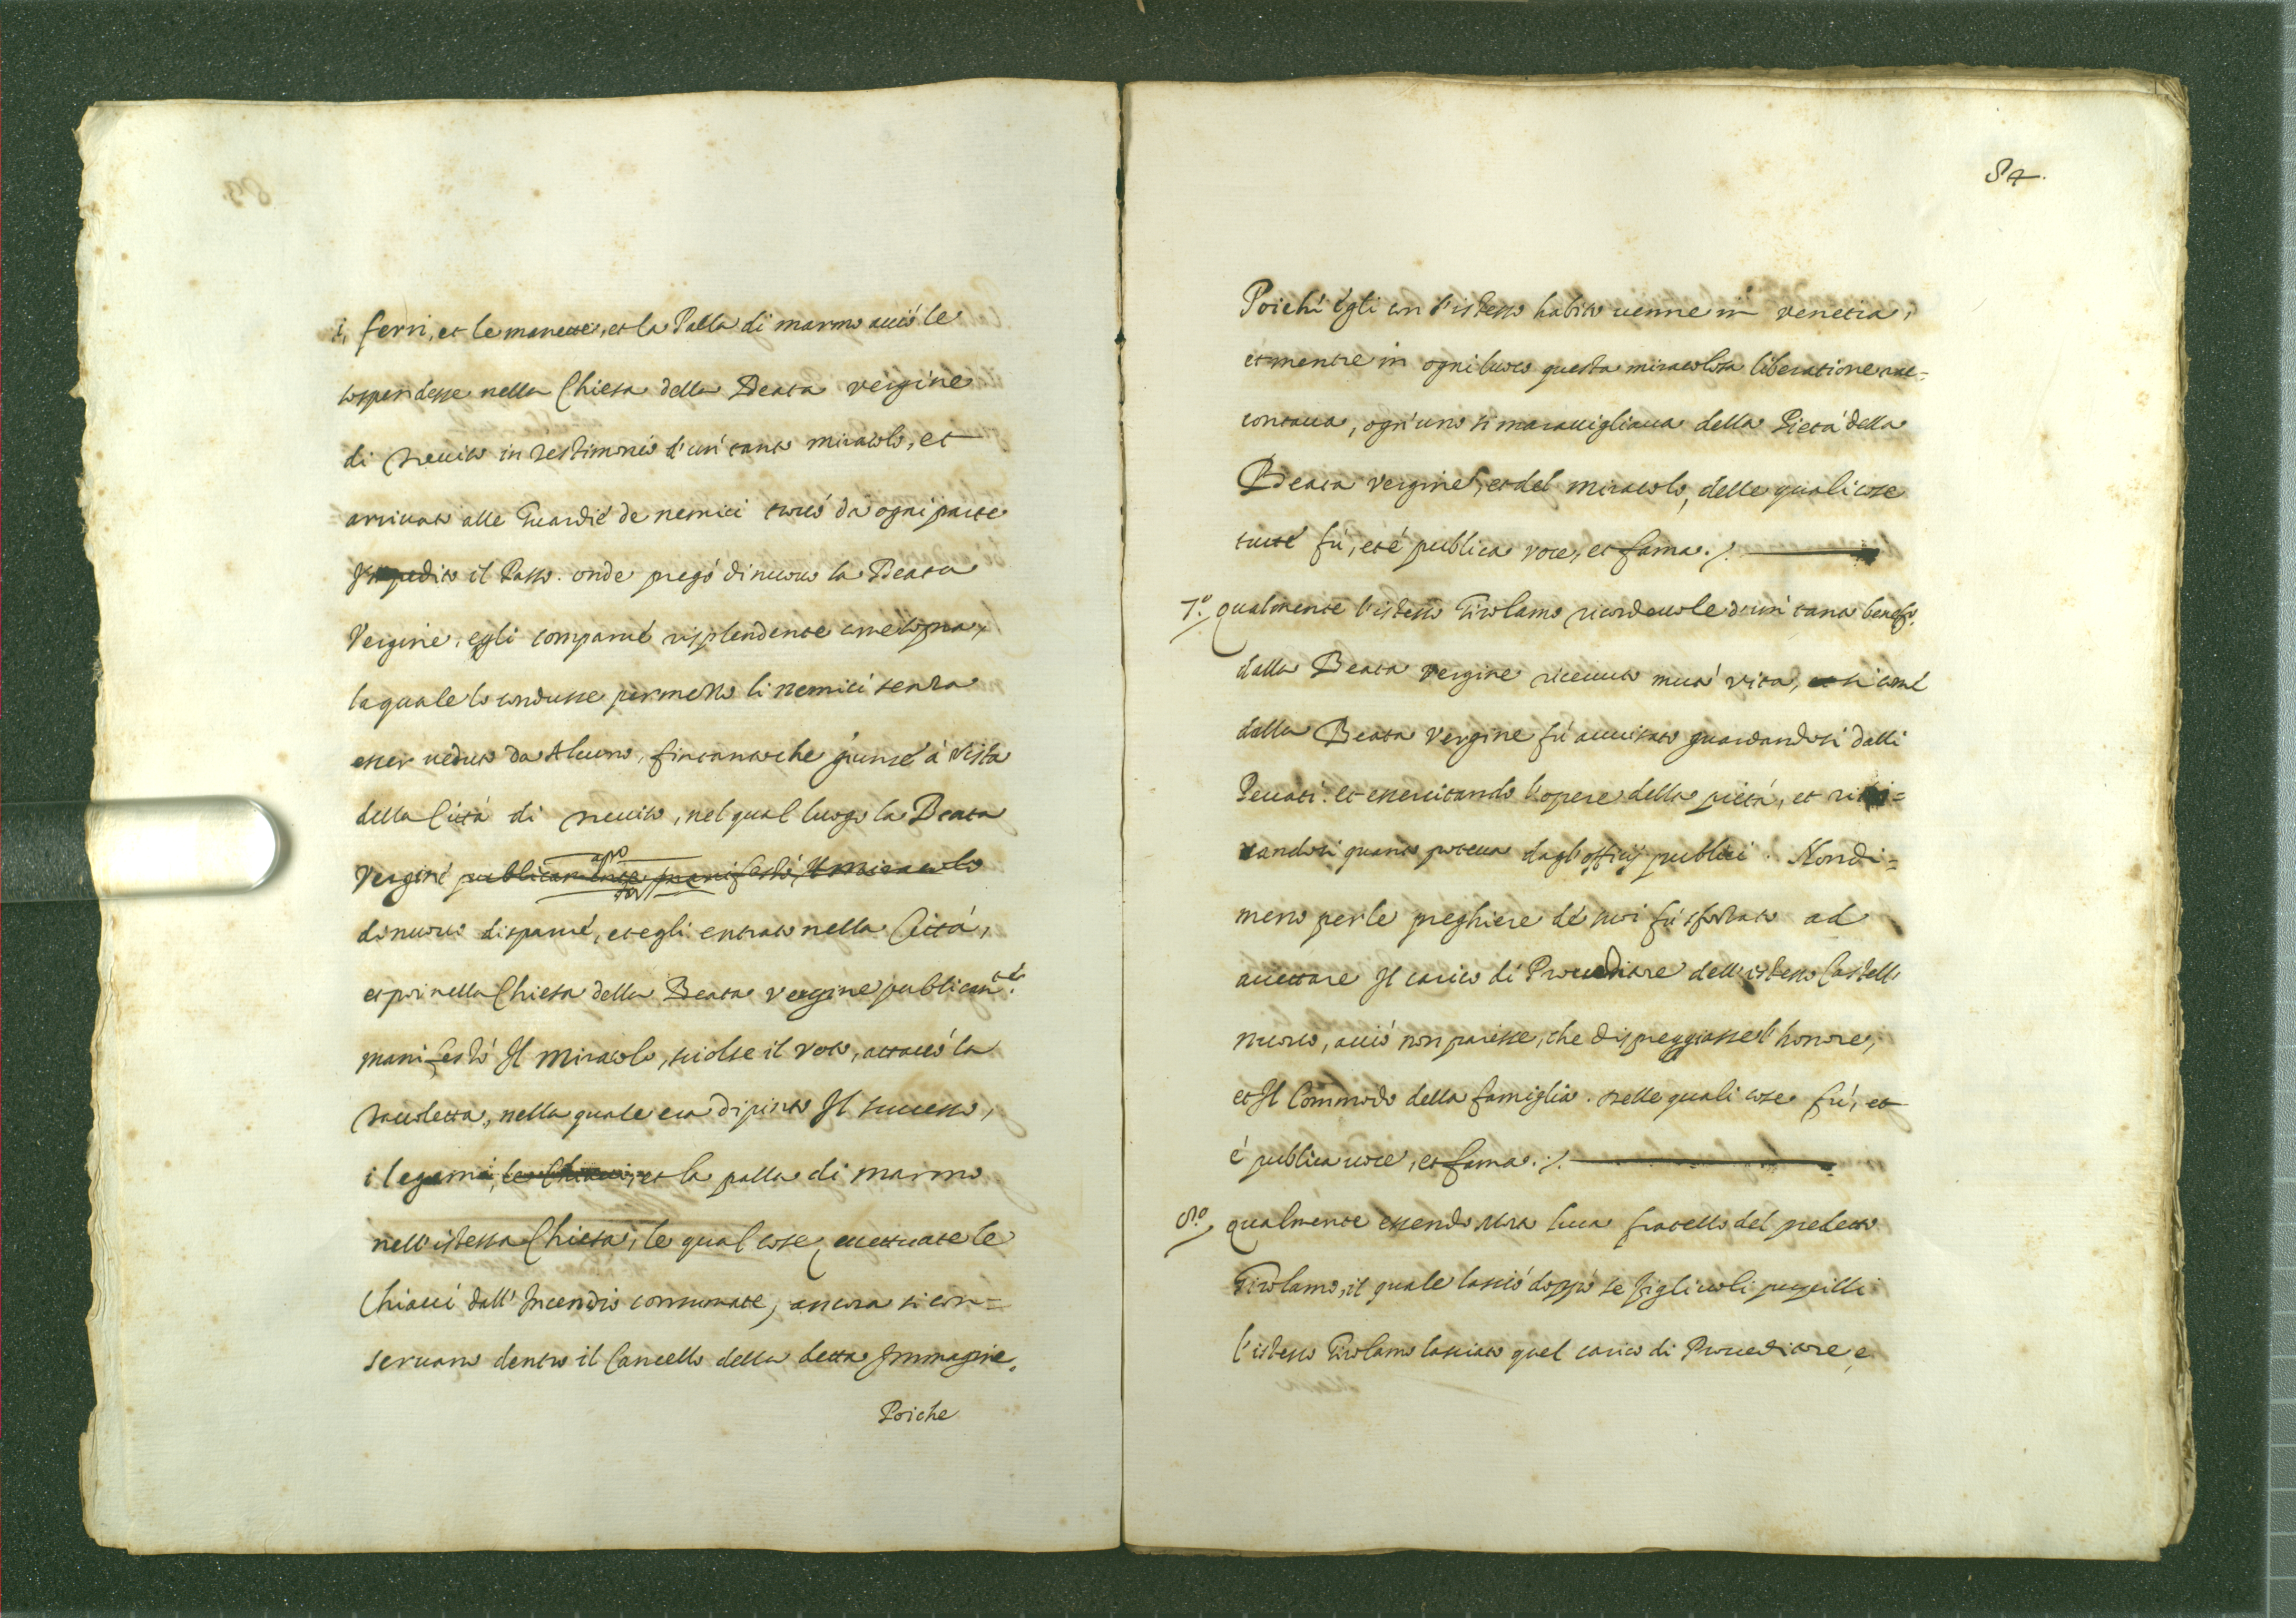 i, ferri, et le manette, et la Palla di marmo acciò le
sospendesse nella Chiesa della Beata Vergine
di Treviso in testimonio d'un tanto miracolo, et
arrivato alle Guardie de nemici trovò da ogni parte
Impedito il Passo. onde pregò di nuovo la Beata
Vergine, egli comparve risplendente come sopra,
la quale lo condusse per mezzo li nemici senza
esser veduto da Alcuno, fin tanto che giunse à vista
della Città di Treviso, nel qual luogo la Beata
Vergine publicamente manifestò, Il Miracolo
di nuovo disparve, et egli entrato nella Città,
et poi nella Chiesa della Beata Vergine publicam.te
manifestò Il Miracolo, sciolse il voto, attaccò la
tavoletta, nella quale era dipinto Il successo,
i legami, le Chiavi, et la palla di marmo
nell'istessa Chiesa, le qual cose, eccettuate le
Chiavi dall'Incendio consumate, ancora si con=
servano dentro il Cancello della detta Immagine.
Poiche
84.
Poiché égli con l'istesso habito venne in Venetia,
et mentre in ogni luoco questa miracolosa liberatione rac=
contava, ogn'uno si maravigliava della Pietà della
Beata Vergine, et del miracolo, delle quali cose
tutte fù, et è publica voce, et fama./.
7.o qualmente l'istesso Girolamo ricordevole d'un tanto benefo.
dalla Beata Vergine ricevuto mutò vita, et si come
dalla Beata Vergine fù avvisato guardandosi dalli
Peccati. et essercitando l'opere della pietà, et riti=
randosi quanto poteva dagl'officij publici. Nondi=
meno per le preghiere de suoi fù sforzato ad
accettare Il carico di Proveditore dell'istesso Castello
nuovo, acciò non paresse, che dispreggiasse l'honore,
et Il Commodo della famiglia. nelle quali cose fù, et
è publica voce, et fama./.
8.o qualmente essendo Mto Luca fratello del predetto
Girolamo, il quale lasciò doppo se figlivoli pupilli
l'istesso Girolamo lasciato quel carico di Proveditore, e